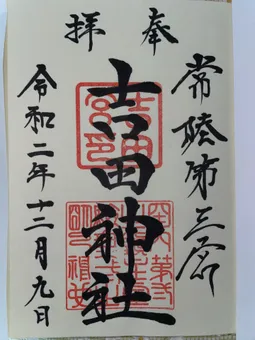 奉拝
常陸第三宮
吉田神社
令和二年十二月九日